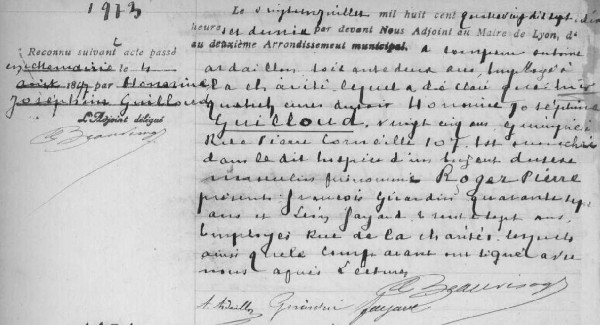 1973
Le vingt juillet mil huit cent quatre vingt dix sept, dix
heures et demie par devant Nous Adjoint au Maire de Lyon, dé
au deuxième Arrondissement municipal. a comparu Antoine
Ardaillon soixante deux ans, employé à
la charité lequel a déclaré que hier
quatre heures du soir Honorine Joséphine
Guilloud, vingt cinq ans,
Rue Pierre Corneille 107, est accouchée
dans le dit hospice d'un enfant du sexe
masculin prénommé Roger Pierre
présents François Girardin quarante sept
ans et Léon Jayard trente sept ans,
employés Rue de la charité, lesquels
ainsi que le comparant ont signé avec
nous après lecture
Reconnu suivant acte passé
en cette mairie le
août 1897 par Honorine
Joséphine Guilloud
L'Adjoint délégué
A. Ardaillon Girardin Jayard